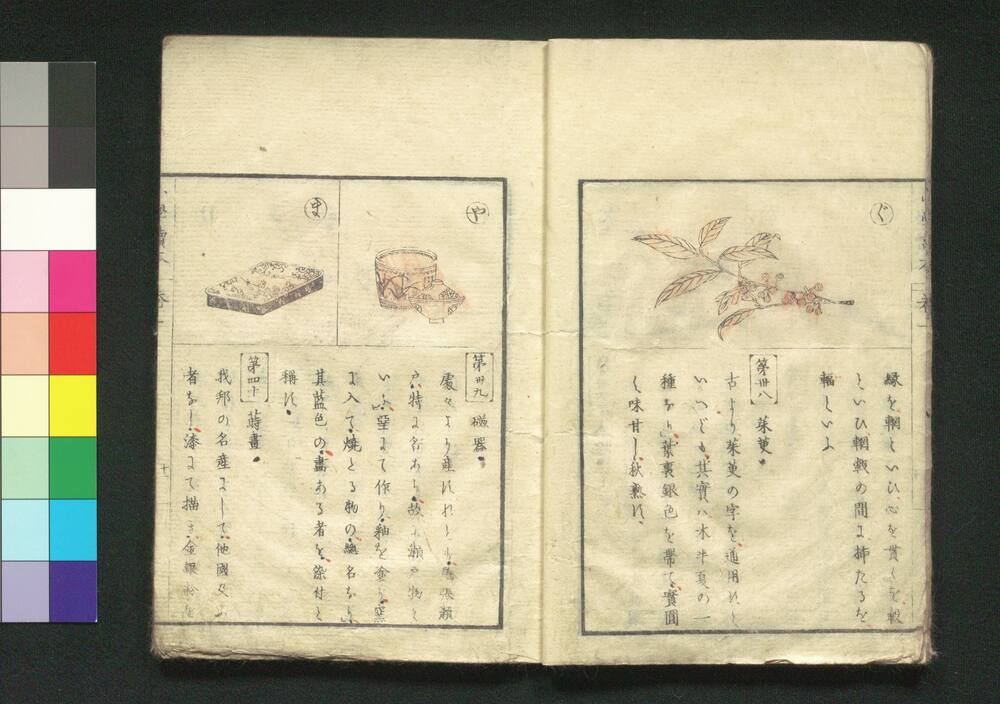 ぐ
縁を輞といひ、心を貫くを轂
といひ輞轂の間に挿たるを
輻といふ
第卅八 茱萸
古より茱萸の字を通用すと
いへども其實ハ木半夏の一
種なり葉裏銀色を帯て實圓
く味甘し秋熟す、
や
ま
第卅九 磁器
處々より産すれと
特に名あり故に瀬戸物と
いふ堊にて作り釉を
に入て焼とる物の總名なり
其藍色の畫ある者を染付と
稱す
第四十 蒔畫
我邦の名産にして他國
者なし漆にて描き金銀粉を
十